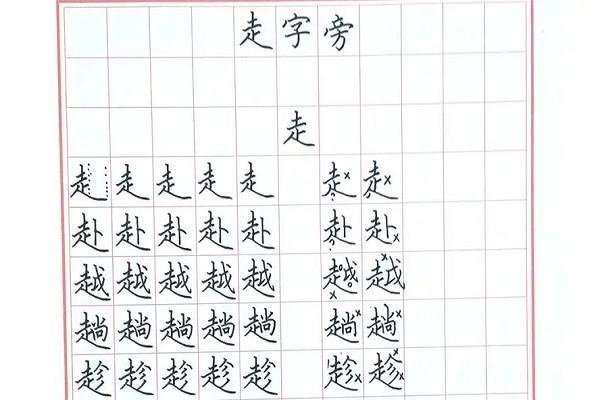 走字旁
走
走走走走走 走×走×
赴赴赴赴赴 赴赴×
越越越越越 越×越×
趟趟趟趟趟 趟×趟×
趁趁趁趁趁 趁×趁××